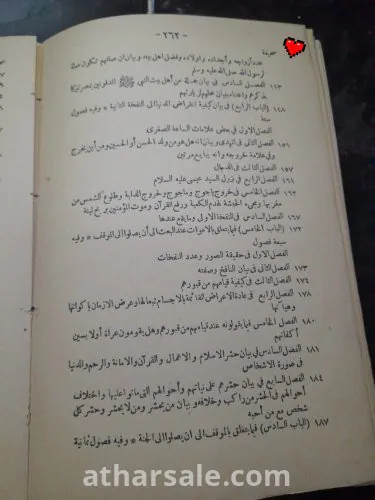 - ٢٦٢ -
صحيفة
عدد أزواجه وأجداده وأولاده وفضل اهل بيته وبيان ان صلاتهم تكون صلة
لرسول الله صلى الله عليه وسلم
١٤٣ الفصل السادس في بيان جملة من أهل بيت النبي ﷺ المدفونين بمصر
بذكرهم واعتناء ببيان محلهم
١٤٨ (الباب الرابع) في بيان كيفية انقراض الدنيا الى النفخة الثانية * وفيه فصول
ستة
الفصل الاول في بعض علامات الساعة الصغرى
١٥١ الفصل الثاني في المهدي وبيان انه هل هو من ولد الحسن أو الحسين ومن أين يخرج
وفي علامة خروجه وانه يبايع مرتين
١٥٧ الفصل الثالث في الدجال
١٦١ الفصل الرابع في نزول السيد عيسى عليه السلام
١٦٤ الفصل الخامس في خروج ياجوج وماجوج وخروج الدابة وطلوع الشمس من
مغربها وبيان الحبشة لهدم الكعبة ورفع القرآن وموت المؤمنين بريح لينة
١٦٧ الفصل السادس في النفخة الاولى وما يقع عندها
١٧٢ (الباب الخامس) فيما يتعلق بالاموات عند البعث الى أن يصلوا الى الموقف * وفيه
سبعة فصول
الفصل الاول في حقيقة الصور وعدد النفخات
١٧٣ الفصل الثاني في بيان النافخ وصفته
١٧٤ الفصل الثالث في كيفية قيامهم من قبورهم
١٧٨ الفصل الرابع في عادة الاعراض القائمة بالاجسام تبعا لها وعرض الازمان باكوانها
وهيآتها
١٨٠ الفصل الخامس فيما يقولونه عند قيامهم من قبورهم وهل يقومون عراة أولابسين
أكفانهم
١٨١ الفصل السادس في بيان حشر الاسلام والاعمال والقرآن والامانة والرحم والدنيا
في صورة الاشخاص
١٨٤ الفصل السابع في بيان حشرهم على نياتهم وأحوالهم التي ماتوا عليها واختلاف
أحوالهم في المحشر من راكب وخلافه وبيان من يحشر ومن لا يحشر وحشر كل
شخص مع من أحبه
١٨٧ (الباب السادس) فيما يتعلق بالموقف الى ان يصلوا الى الجنة * وفيه فصول ثمانية
atharsale.com